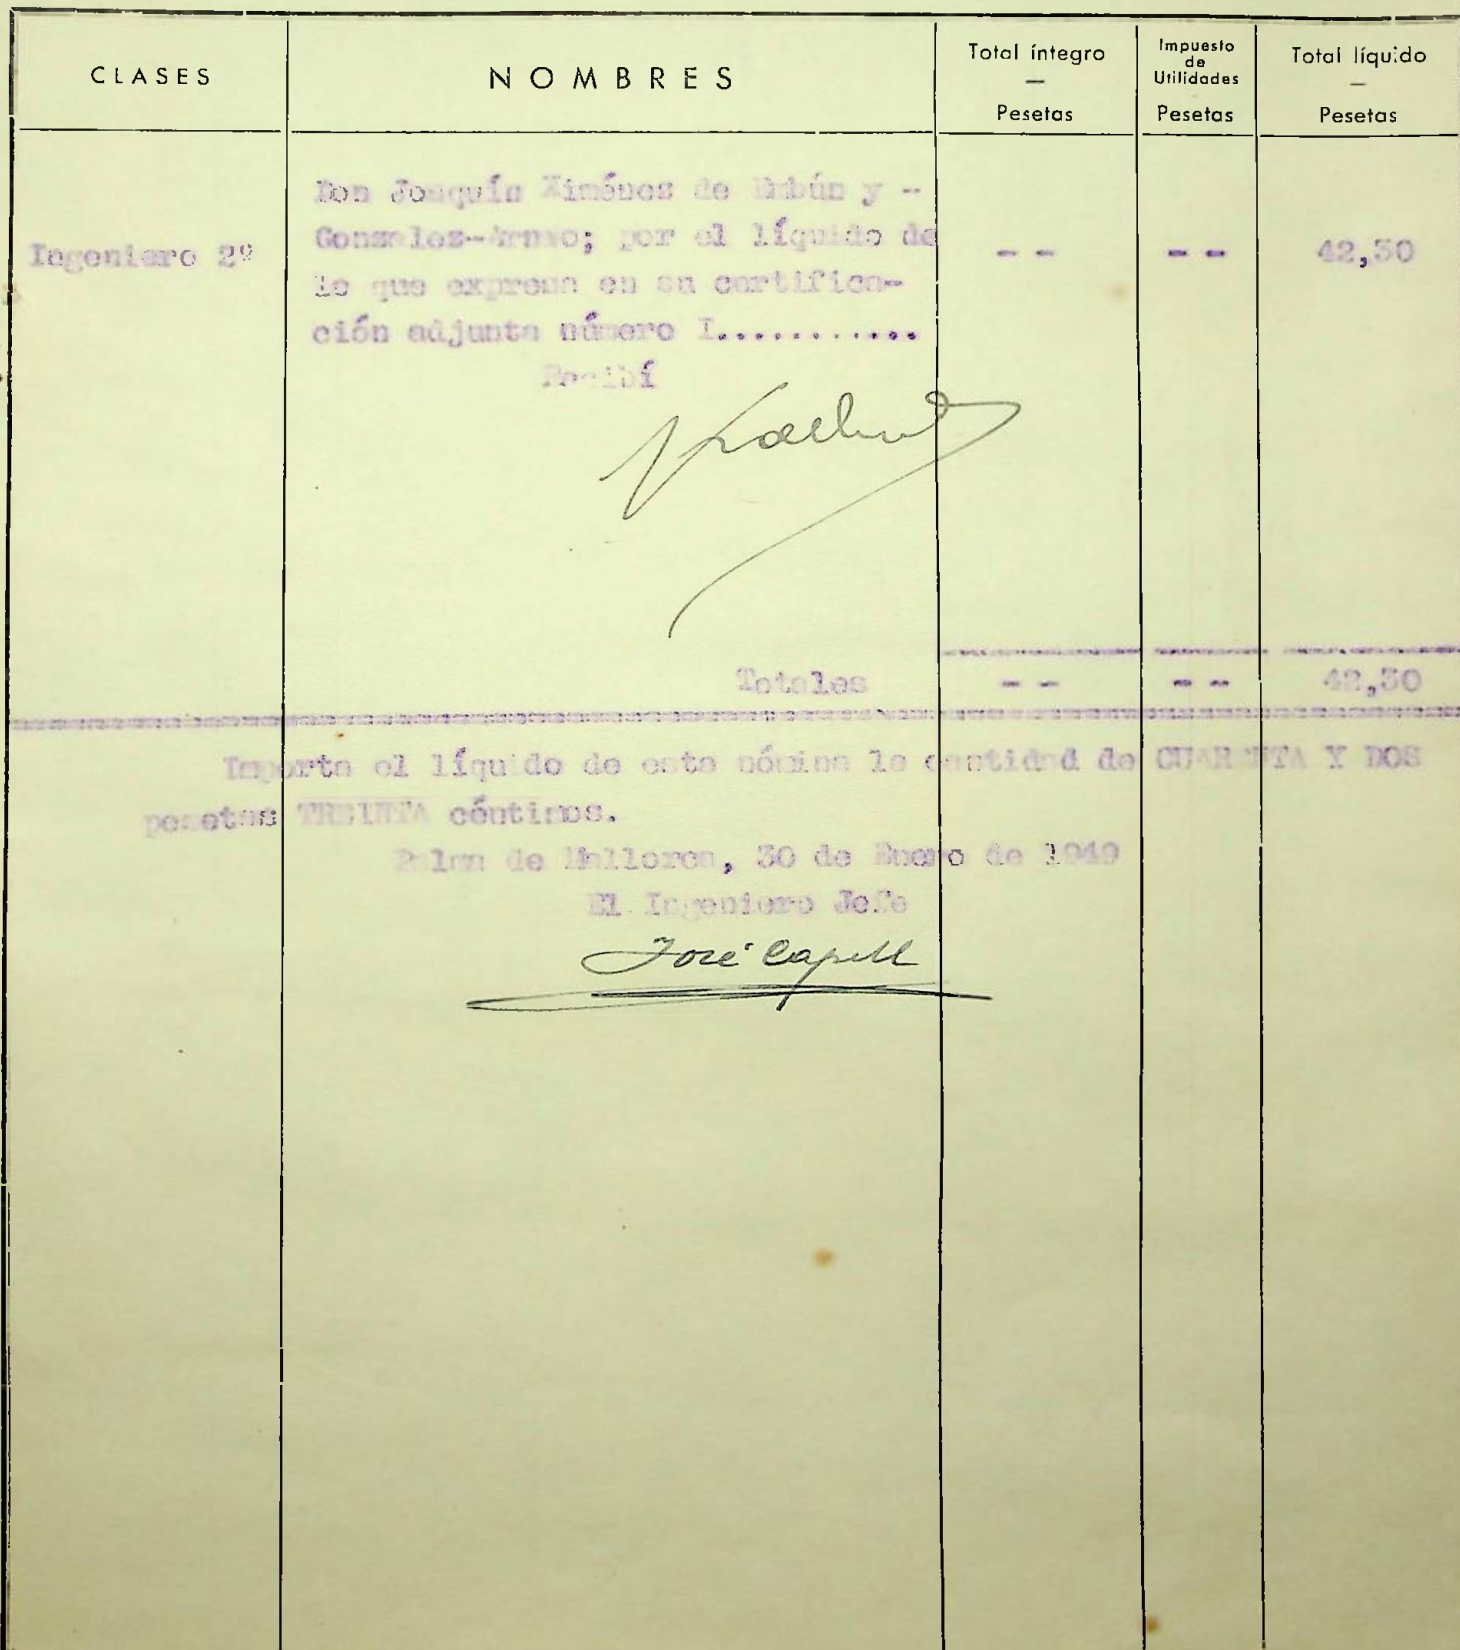 CLASES
NOMBRES
Total íntegro
—
Pesetas
Impuesto
de
Utilidades
Pesetas
Total líquido
—
Pesetas
Don Joaquín Ximénez de Embún y -
Gonzalez-Arnao; por el líquido de
lo que expresa en su certifica-
ción adjunta número I............
Ingeniero 2º
-- -- 42,30
Recibí
Totales -- -- 42,30
Importa el líquido de esta nómina la cantidad de CUARENTA Y DOS
pesetas TREINTA céntimos.
Palma de Mallorca, 30 de Enero de 1949
El Ingeniero Jefe
José Capell